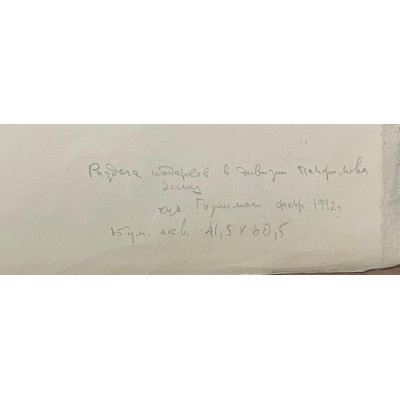 Раздача подарков в дивизии Панфилова
эскиз
худ. Горшман февр 1942г.
бум. акв. 41,5 x 60,5